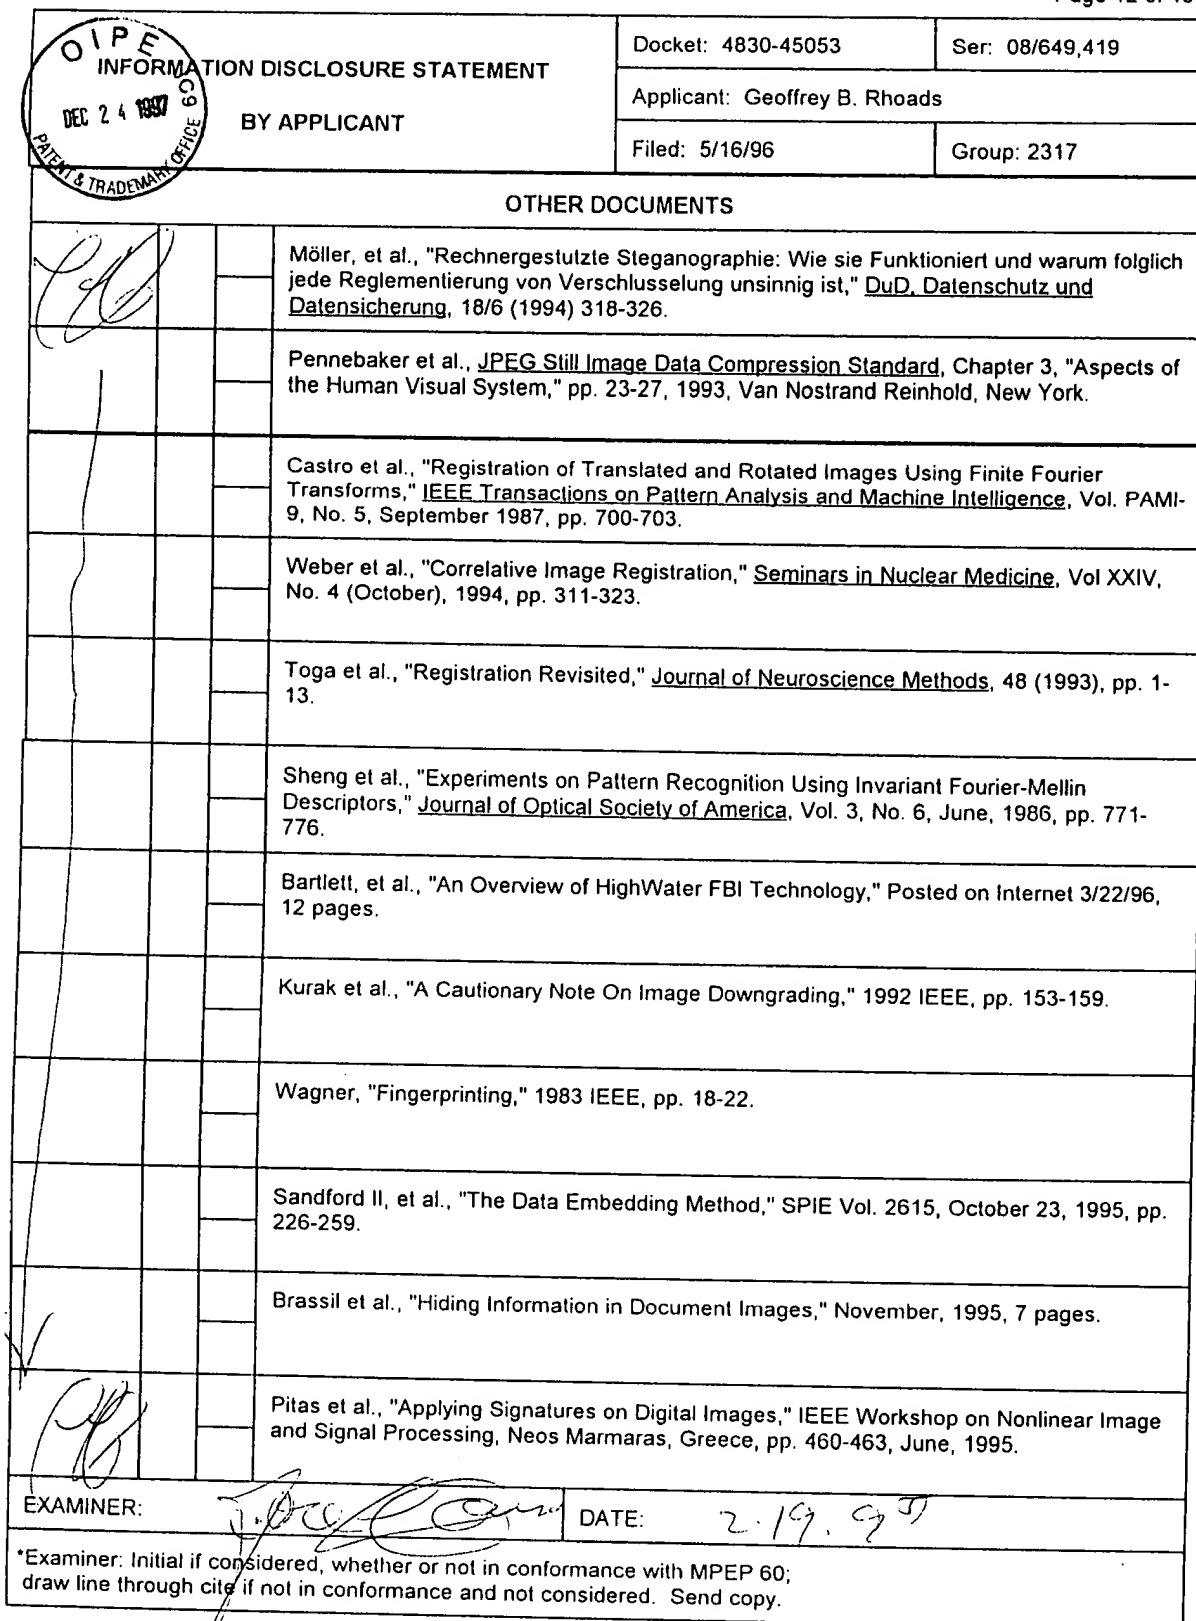 OIPE
INFORMATION DISCLOSURE STATEMENT
BY APPLICANT
DEC 24 1997
PATENT & TRADEMARK OFFICE
Docket: 4830-45053
Ser: 08/649,419
Applicant: Geoffrey B. Rhoads
Filed: 5/16/96
Group: 2317
OTHER DOCUMENTS
Möller, et al., "Rechnergestutzte Steganographie: Wie sie Funktioniert und warum folglich
jede Reglementierung von Verschlusselung unsinnig ist," DuD, Datenschutz und
Datensicherung, 18/6 (1994) 318-326.
Pennebaker et al., JPEG Still Image Data Compression Standard, Chapter 3, "Aspects of
the Human Visual System," pp. 23-27, 1993, Van Nostrand Reinhold, New York.
Castro et al., "Registration of Translated and Rotated Images Using Finite Fourier
Transforms," IEEE Transactions on Pattern Analysis and Machine Intelligence, Vol. PAMI-
9, No. 5, September 1987, pp. 700-703.
Weber et al., "Correlative Image Registration," Seminars in Nuclear Medicine, Vol XXIV,
No. 4 (October), 1994, pp. 311-323.
Toga et al., "Registration Revisited," Journal of Neuroscience Methods, 48 (1993), pp. 1-
13.
Sheng et al., "Experiments on Pattern Recognition Using Invariant Fourier-Mellin
Descriptors," Journal of Optical Society of America, Vol. 3, No. 6, June, 1986, pp. 771-
776.
Bartlett, et al., "An Overview of HighWater FBI Technology," Posted on Internet 3/22/96,
12 pages.
Kurak et al., "A Cautionary Note On Image Downgrading," 1992 IEEE, pp. 153-159.
Wagner, "Fingerprinting," 1983 IEEE, pp. 18-22.
Sandford II, et al., "The Data Embedding Method," SPIE Vol. 2615, October 23, 1995, pp.
226-259.
Brassil et al., "Hiding Information in Document Images," November, 1995, 7 pages.
Pitas et al., "Applying Signatures on Digital Images," IEEE Workshop on Nonlinear Image
and Signal Processing, Neos Marmaras, Greece, pp. 460-463, June, 1995.
EXAMINER:
DATE:
*Examiner: Initial if considered, whether or not in conformance with MPEP 60;
draw line through cite if not in conformance and not considered. Send copy.